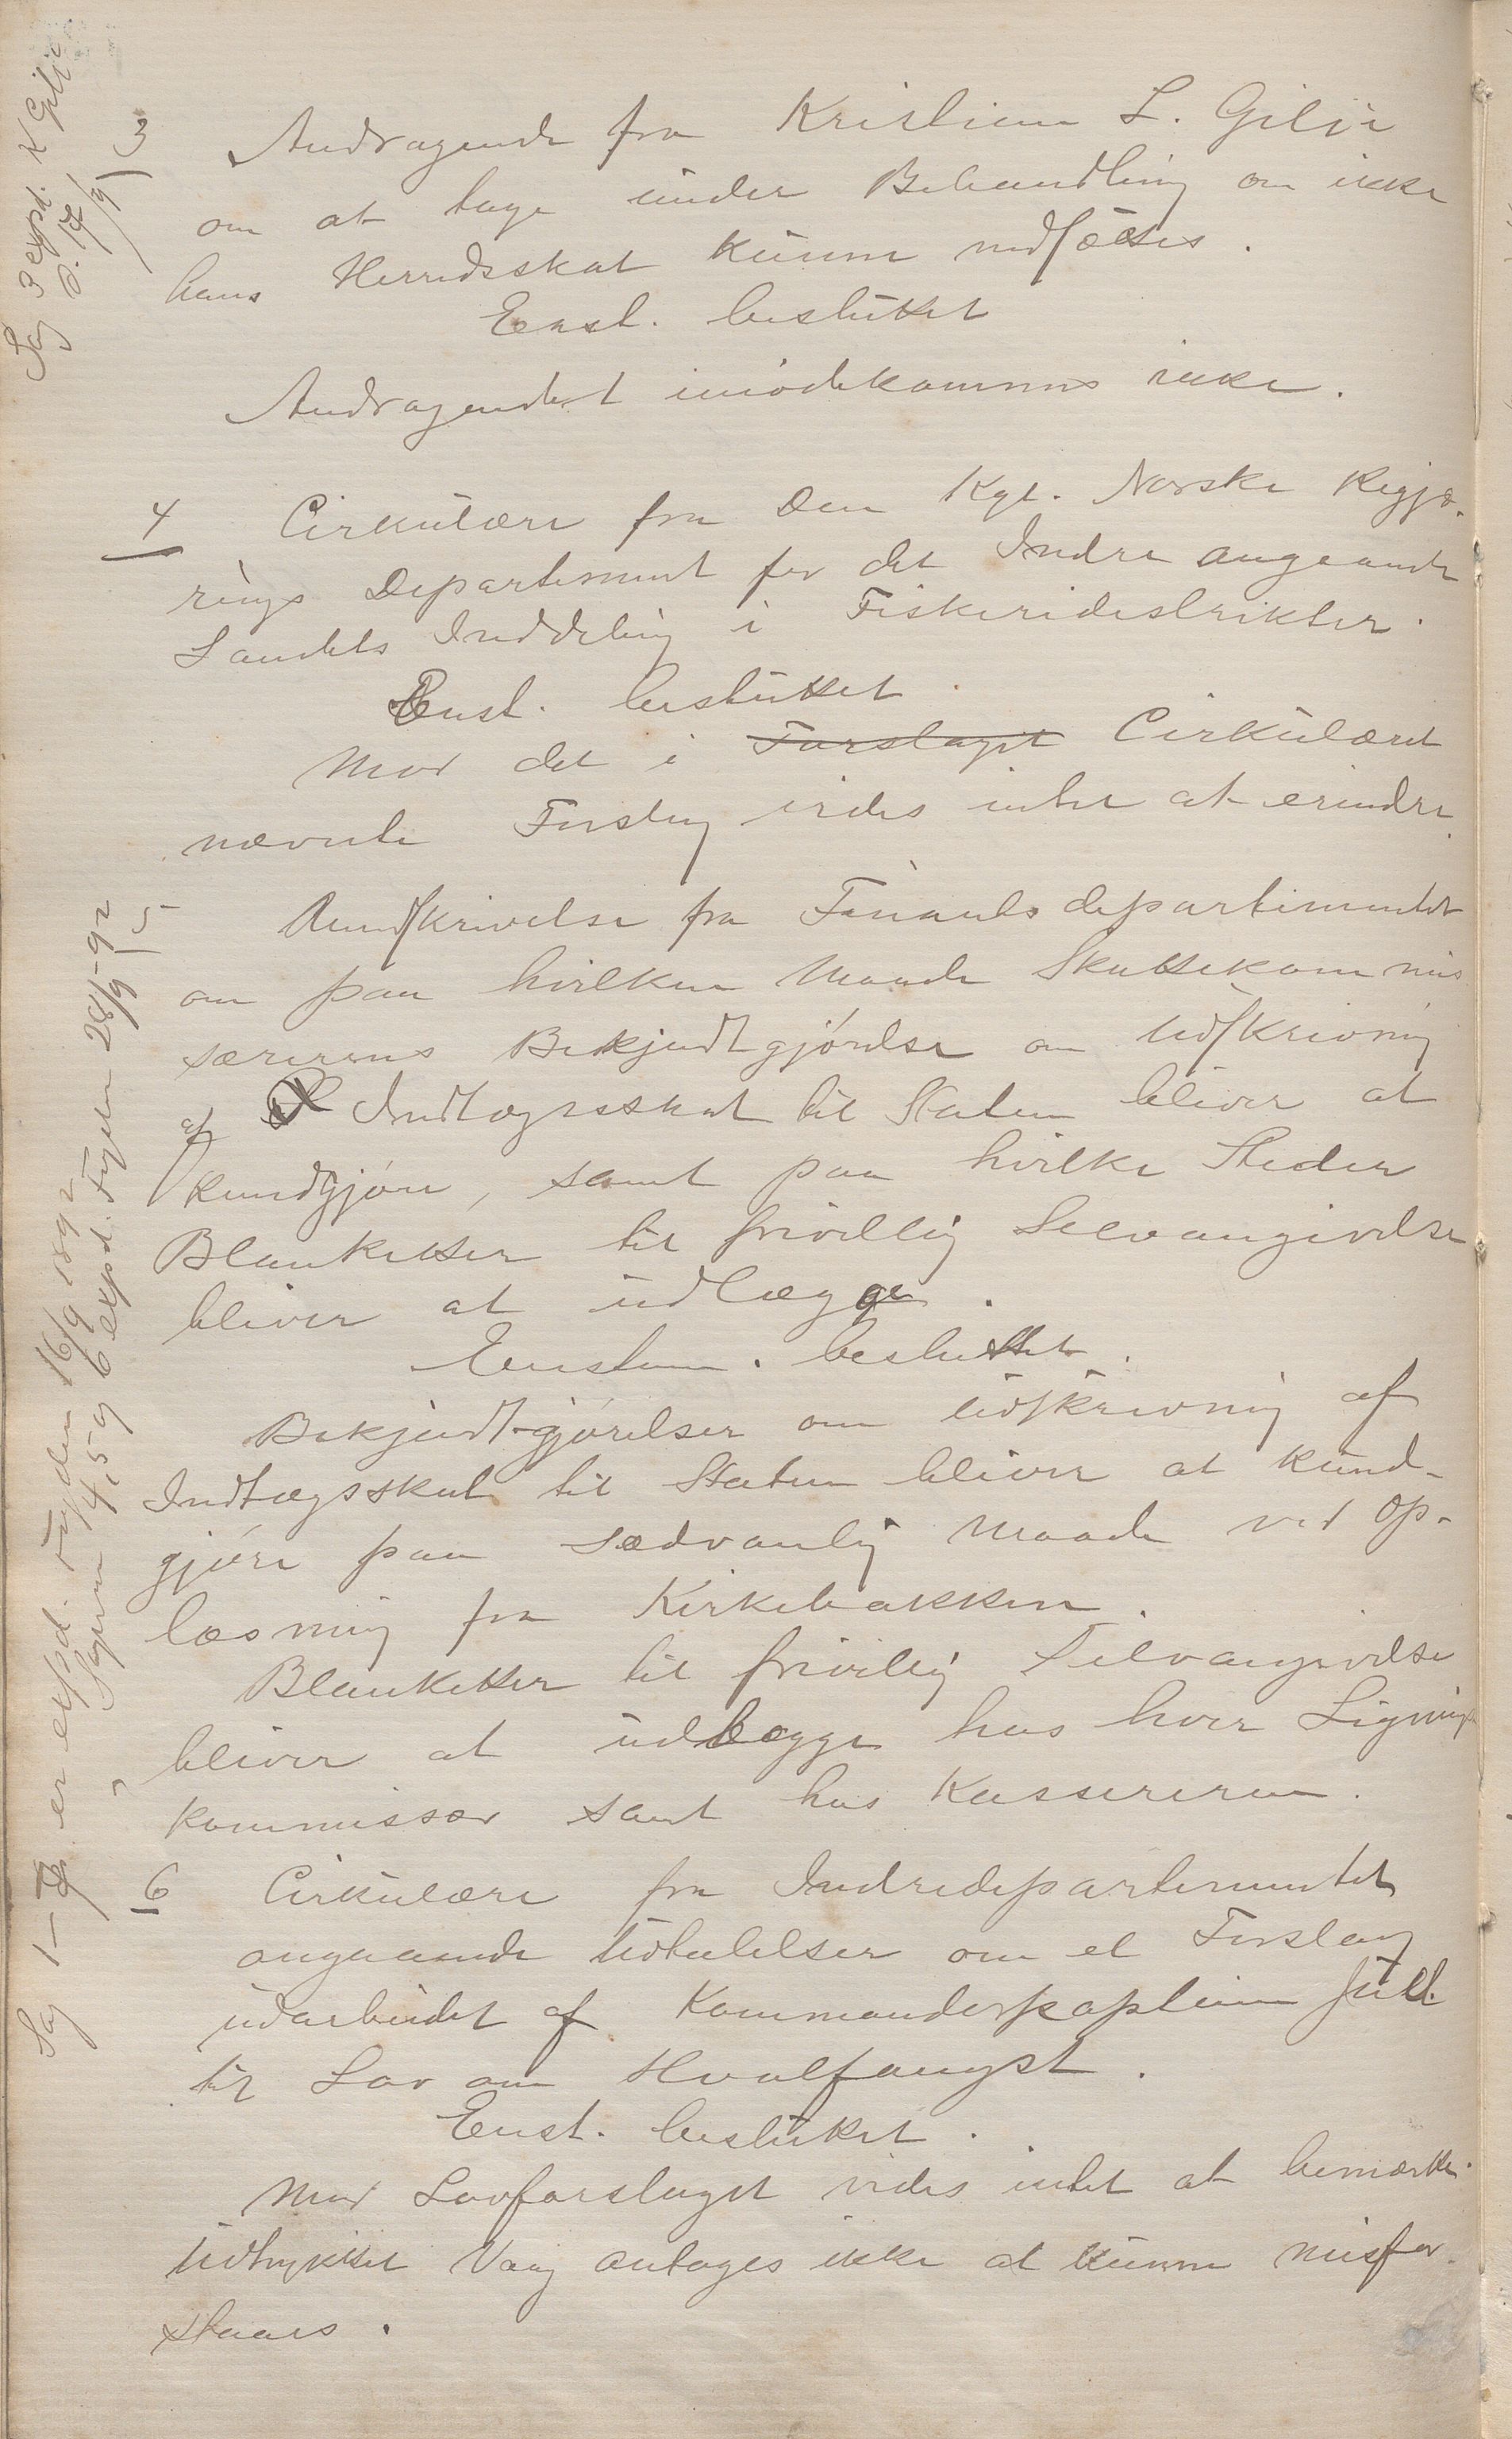 3 Andragende fra Kristian L. Gilje
om at tage under Behandling om ikke
hans Herredsskat kunne nedsættes.
Enst. besluttet
Andragendet imødekommes ikke.
4 Cirkulære fra Den Kgl. Norske Regje-
rings Departement for det Indre angaaende
Landets Inddeling i Fiskeridistrikter.
Enst. besluttet.
Mod det i Forslaget Cirkulæret
nævnte Forslag vides intet at erindre.
5 Rundskrivelse fra Finantsdepartementet
om paa hvilken Maade Skattekommis
særerens Bekjendtgjørelse om Udskrivning
af Indtægsskat til Staten bliver at
kundgjøre, samt paa hvilke Steder
Blanketter til frivillig Selvangivelse
bliver at udlægge.
Enstem. besluttet.
Bekjendtgjørelser om Udskrivning af
Indtægsskat til Staten bliver at kund-
gjøre paa sædvanlig Maade ved Op-
læsning fra Kirkebakken.
Blanketter til frivillig Selvangivelse
bliver at udlægge hos hver Lignings
kommissær samt hos Kassereren.
6 Cirkulære fra Indredepartementet
angaaende Udtalelser om et Forslag
udarbeidet af Kommandørkaptein Juel
til Lov om Hvalfangst.
Enst. besluttet.
Mod Lovforslaget vides intet at bemærke.
Udtrykket Vaag antages ikke at kunne misfor-
staaes.
Sag 3 expd. K Gilje
d. 17/9
Sag 1-7 er expd. Fogden 16/9 1892
" Sagerne 4, 5 og 6 expd. Fogden 28/9-92